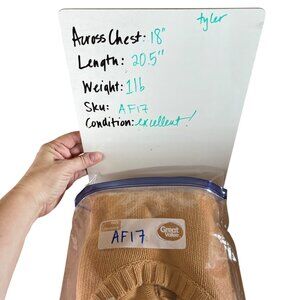 tyler
Across Chest: 18"
Length: 20.5"
Weight: 1lb
Sku: AF17
Condition: excellent!
AF17
Great
Value